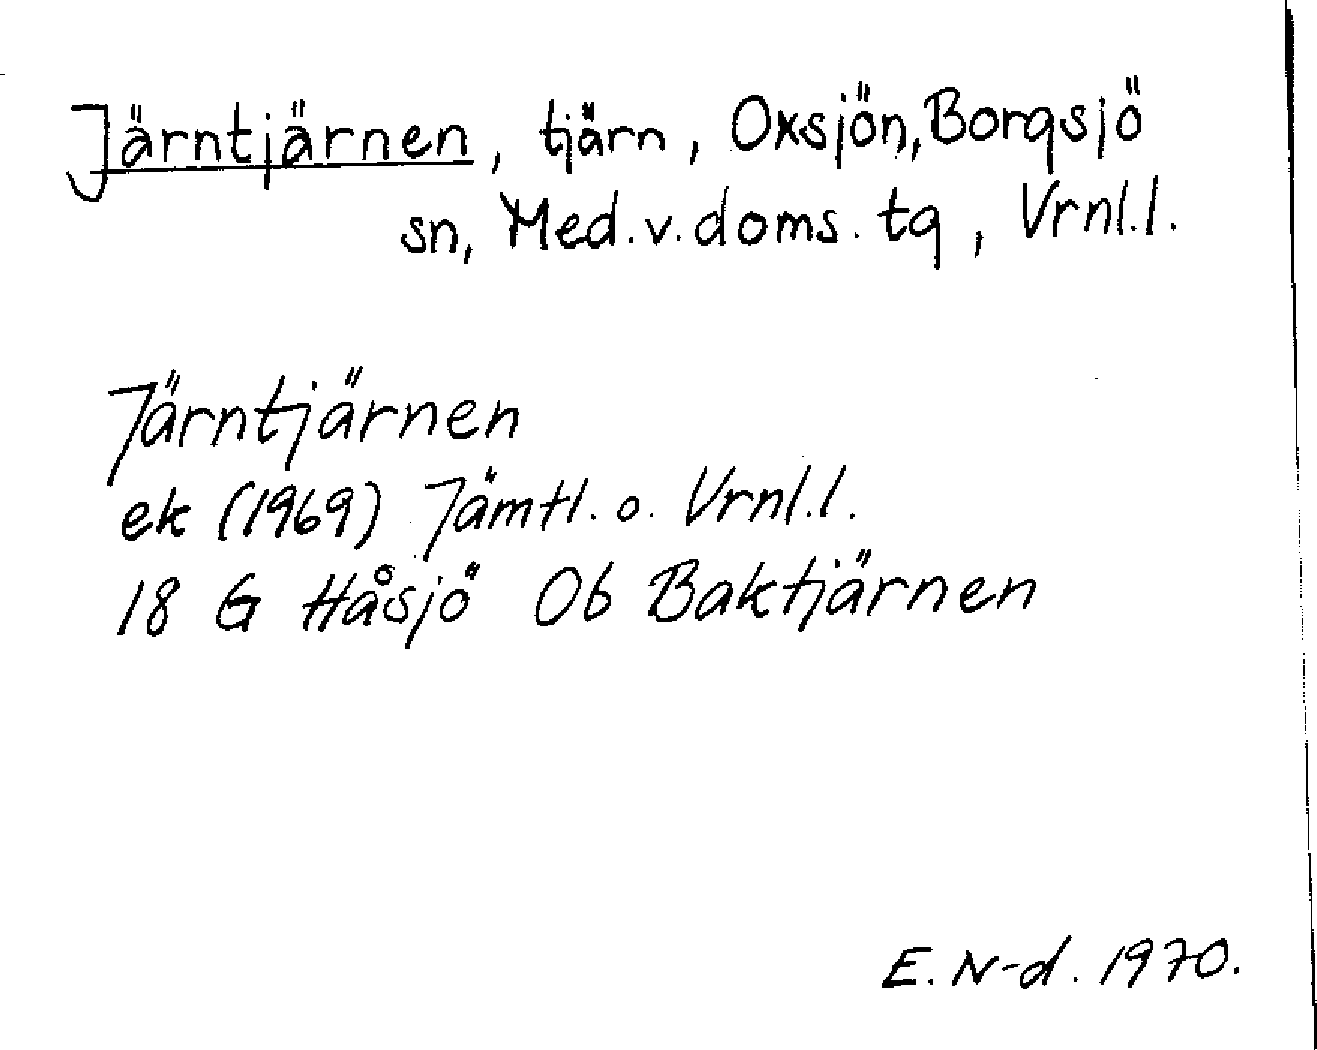 Järntjärnen, tjärn, Oxsjön, Borgsjö
sn, Med.v.doms.tg, Vrnl.l.
Järntjärnen
ek (1969) Jämtl. o. Vrnl.l.
18 G Håsjö Ob Baktjärnen
E. N-d. 1970.